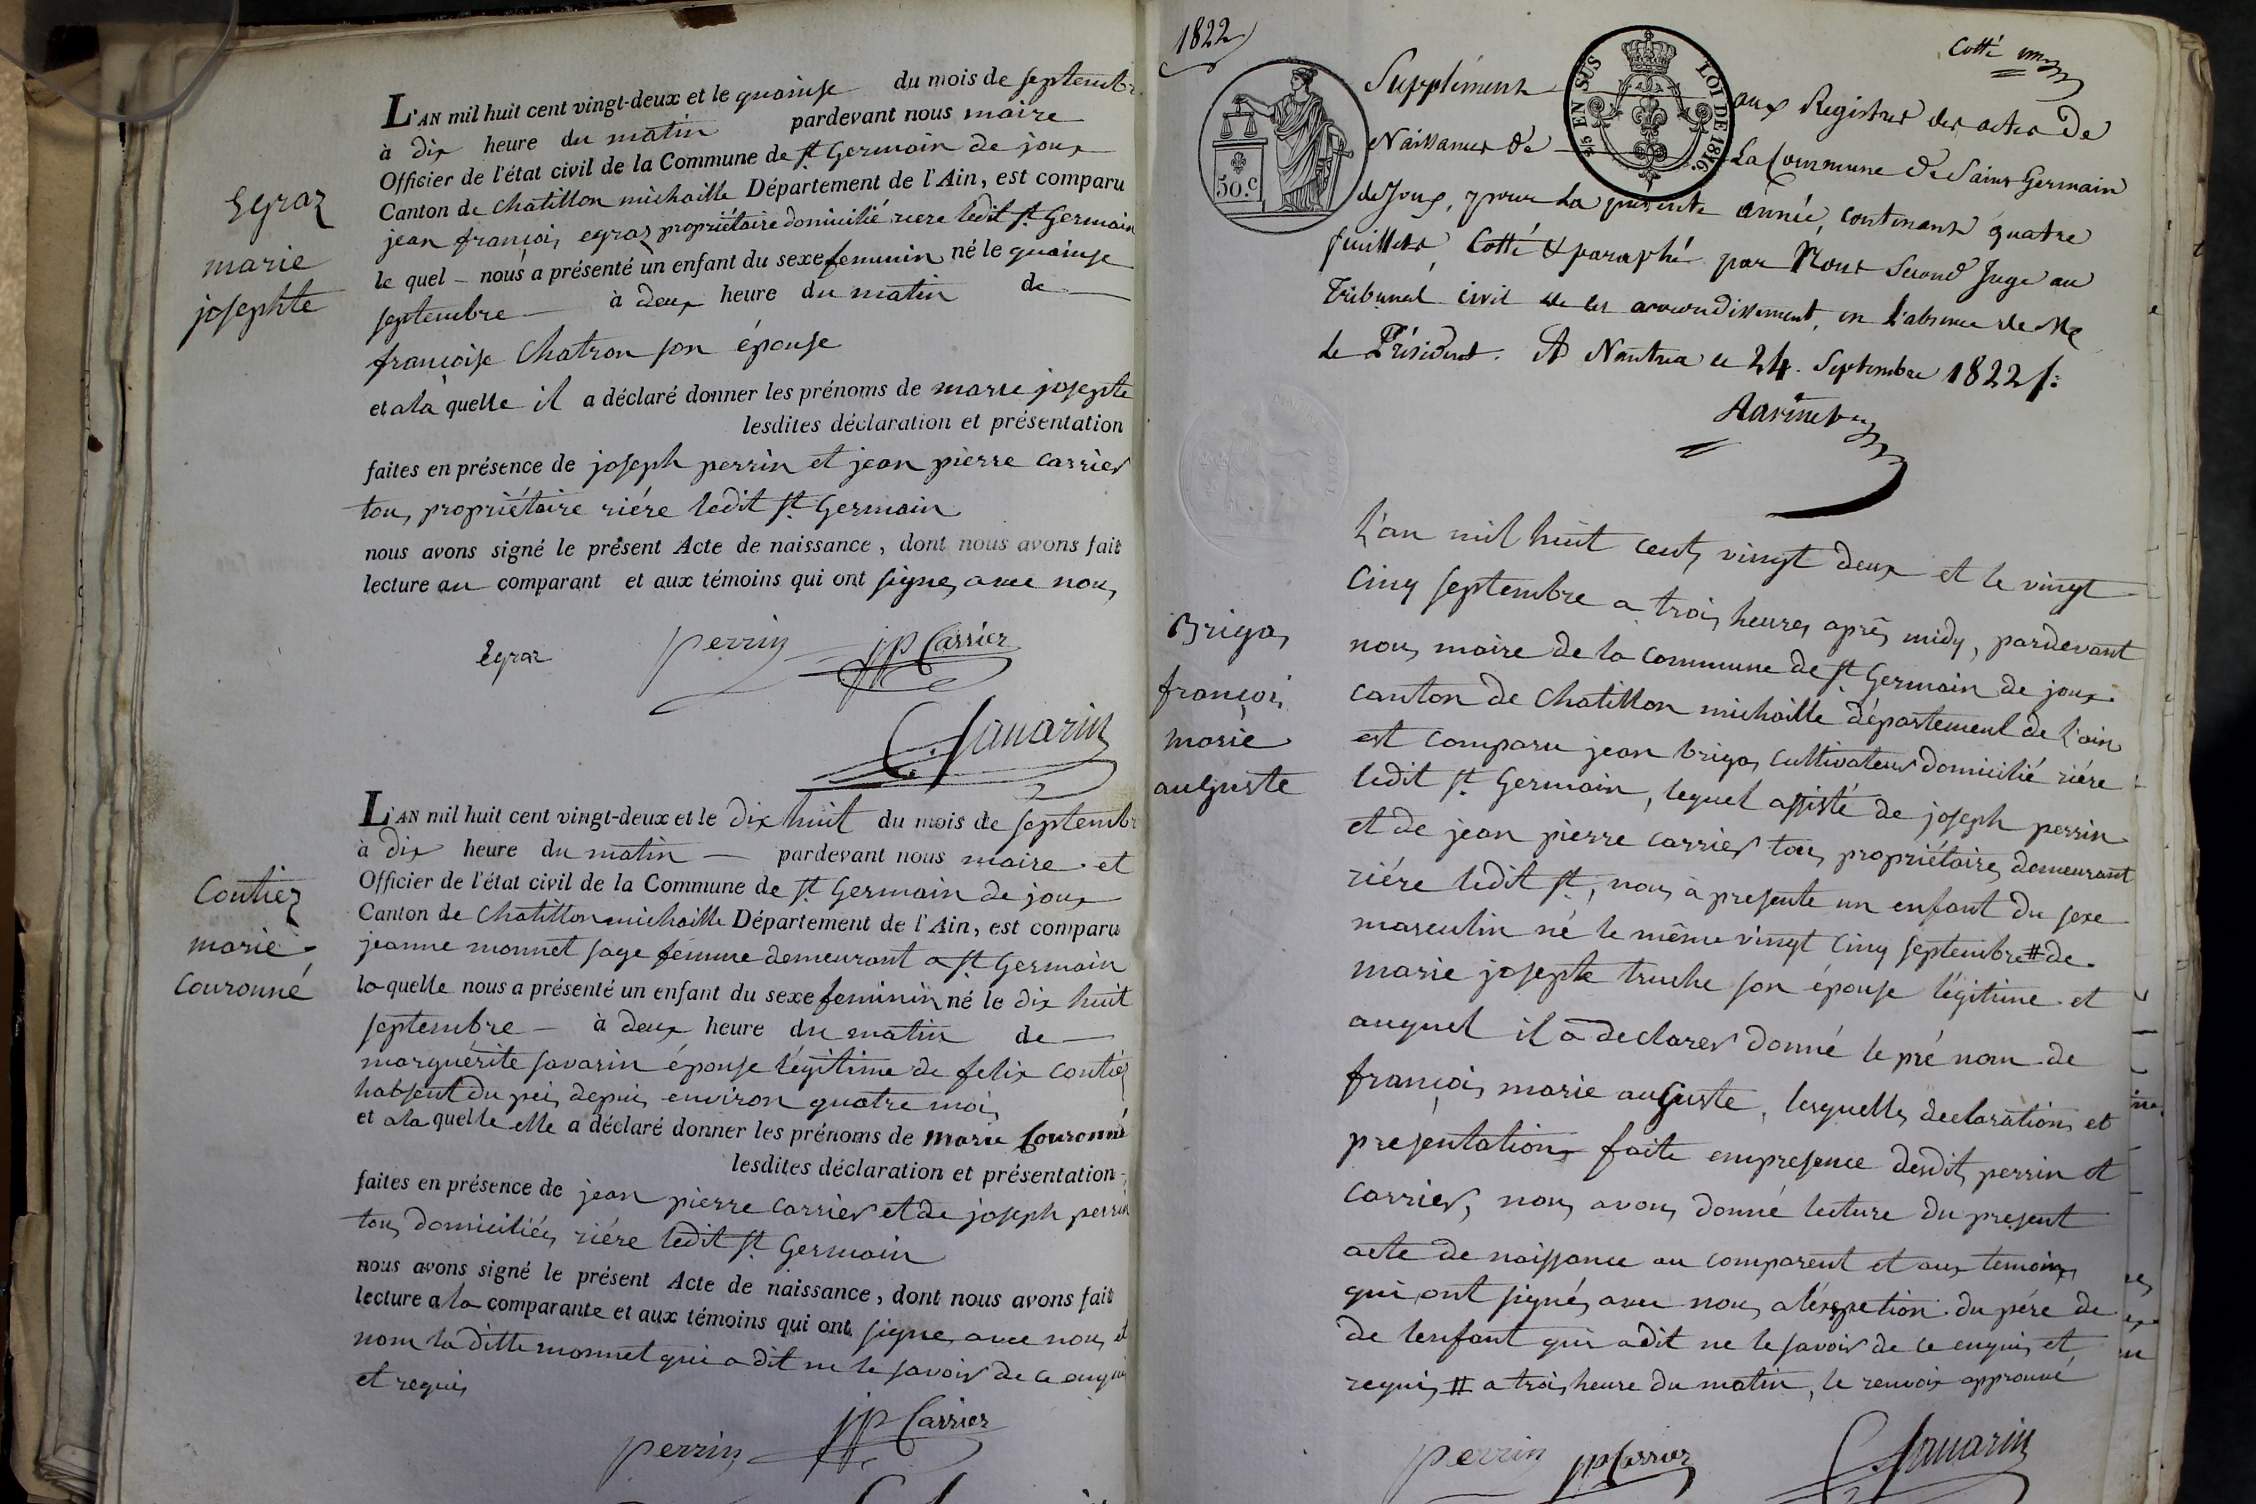 Egraz
marie
josephte
L'AN mil huit cent vingt-deux et le quainse du mois de septembr
à dix heure du matin pardevant nous maire
Officier de l'état civil de la Commune de St Germain de joux
Canton de Chatillon michaille Département de l'Ain, est comparu
jean françois egraz propriétaire domicilié riere ledit St Germain
le quel – nous a présenté un enfant du sexe feminin né le quainse
septembre — à deux heure du matin de —
françoise Chatron son épouse
et a la quelle il a déclaré donner les prénoms de marie josepte
lesdites déclaration et présentation
faites en présence de joseph perrin et jean pierre carrier
tous propriétaire riére ledit St Germain
nous avons signé le présent Acte de naissance, dont nous avons fait
lecture au comparant et aux témoins qui ont signes avec nous
Egraz perrin jp Carrier
C. Savarin
Coutiez
marie
Couronné
L'AN mil huit cent vingt-deux et le dix huit du mois de septembr
à dix heure du matin — pardevant nous maire et
Officier de l'état civil de la Commune de St Germain de joux
Canton de Chatillon michaille Département de l'Ain, est comparu
jeanne monnet sage femme demeurant a St Germain
la quelle nous a présenté un enfant du sexe feminin né le dix huit
septembre — à deux heure du matin de —
marguérite savarin épouse légitime de felix coutiez
habsent du peis depuis environ quatre mois
et a la quelle elle a déclaré donner les prénoms de marie Couronné
lesdites déclaration et présentation
faites en présence de jean pierre carrier et de joseph perrin
tous domiciliés riére ledit St Germain
nous avons signé le présent Acte de naissance, dont nous avons fait
lecture a la comparante et aux témoins qui ont signes avec nous et
nom la ditte monnet qui a dit ne le savoir de ce enquis
et requis
perrin jp Carrier
1822
Cotté un
50.c
25 EN SUS LOI DE 1816.
Supplément aux Registres des actes de
Naissances de La Commune de Saint Germain
de Joux, pour La présente année, contenant quatre
feuillets, Cotté & paraphé par Nous Second Juge au
Tribunal civil de cet arrondissement, en l'absence de Mr
le Président. A Nantua le 24 Septembre 1822 /:
Brigas
françois
marie
auguste
L'an mil huit cents vingt deux et le vingt
cinq septembre a trois heures après midy, pardevant
nous maire de la commune de St Germain de joux
canton de Chatillon michaille département de l'ain
est comparu jean brigas cultivateur domicilié riére
ledit St Germain, lequel assisté de joseph perrin
et de jean pierre carrier tous propriétaires demeurant
riére ledit St, nous à presente un enfant du sexe
masculin né le même vingt cinq septembre # de
marie josepte truche son épouse légitime et
auquel il a declarer donné le pré nom de
françois marie auguste, lesquelles declarations et
presentations faite empresence desdits perrin et
carrier, nous avons donné lecture du present
acte de naissance au comparent et aux temoins
qui ont signés avec nous a léxcpetion du pére de
de lenfant qui a dit ne le savoir de ce enquis et
requis # a trois heure du matin, le renvois approuvé
perrin jp Carrier C. Savarin